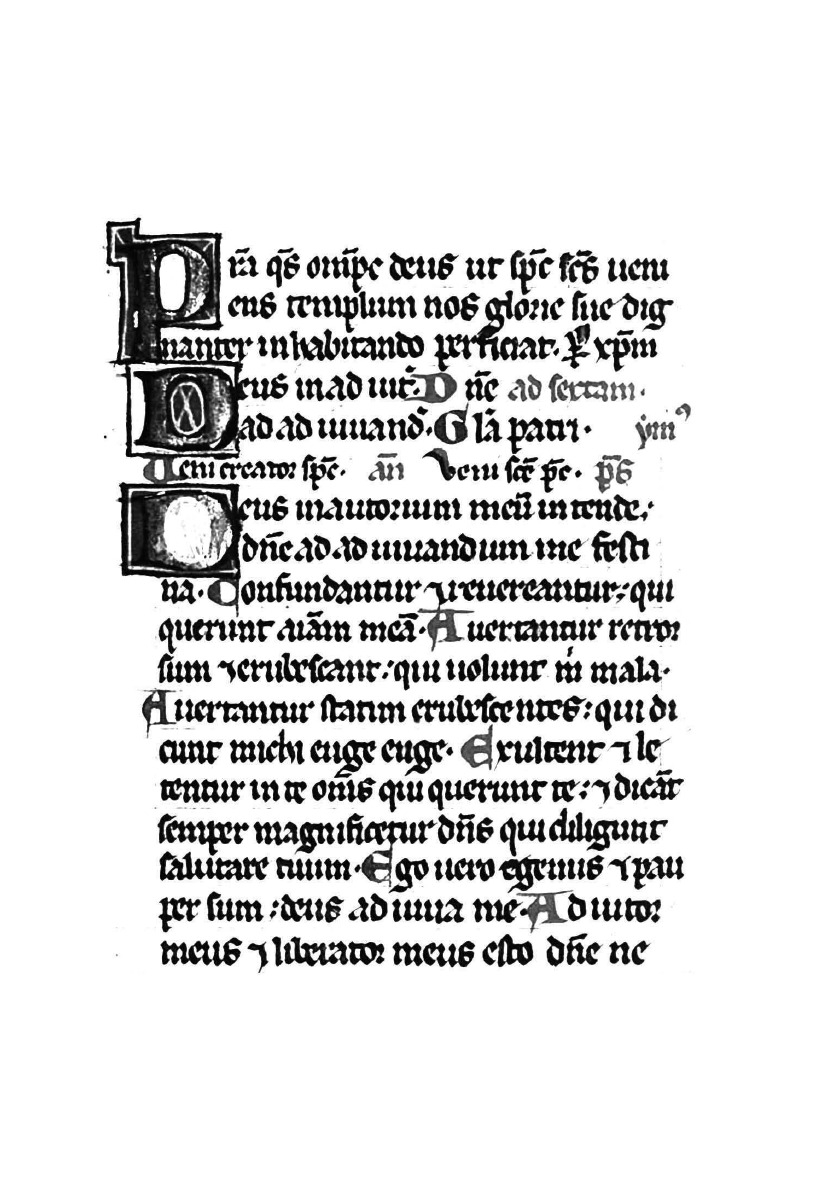 Pr̄a q̄s om̄pc deus ut sp̄c sc̄s ueni
ens templum nos glorie sue dig
nanter inhabitando perficiat. P̱ xp̄m
Deus in ad iut̄. D n̄e ad sextam.
ad ad iuuand̄. G lā patri. ym̄ꝰ
Veni creator sp̄c. an̄ Veni sc̄e p̄c. p̄s
Deus in aiutorium meū intende:
dn̄e ad ad iuuandum me festi
na. Confundantur ⁊ reuereantur: qui
querunt aiām meā. A uertantur retror
sum ⁊ erubescant: qui uolunt m̄ mala.
Auertantur statim erubescentes: qui di
cunt michi euge euge. Exultent ⁊ le
tentur in te om̄s qui querunt te: ⁊ dicāt
semper magnificetur dn̄s qui diligunt
salutare tuum. Ego uero egenus ⁊ pau
per sum: deus ad iuua me. A d iutor
meus ⁊ liberator meus esto dn̄e ne